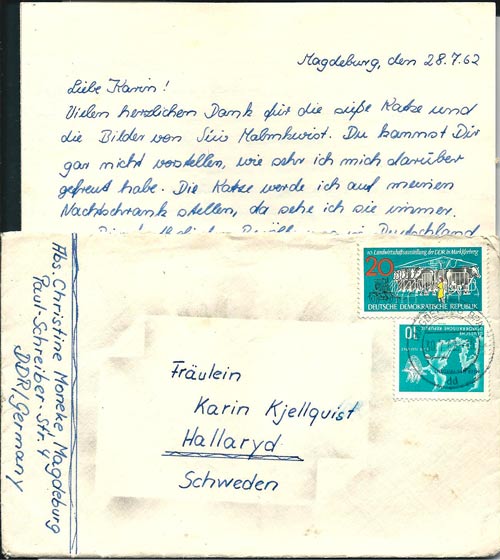 Magdeburg, den 28.7.62
Liebe Karin!
Vielen herzlichen Dank für die süße Katze und
die Bilder von Siw Malmkwist. Du kannst Dir
gar nicht vorstellen, wie sehr ich mich darüber
gefreut habe. Die Katze werde ich auf meinen
Nachtschrank stellen, da sehe ich sie immer.
in Deutschland
10. Landwirtschaftsausstellung der DDR in Markkleeberg
20
DEUTSCHE DEMOKRATISCHE REPUBLIK
10
Fräulein
Karin Kjellquist
Hallaryd
Schweden
Abs. Christine Moneke Magdeburg
Paul-Schreiber-Str. 4
DDR/Germany